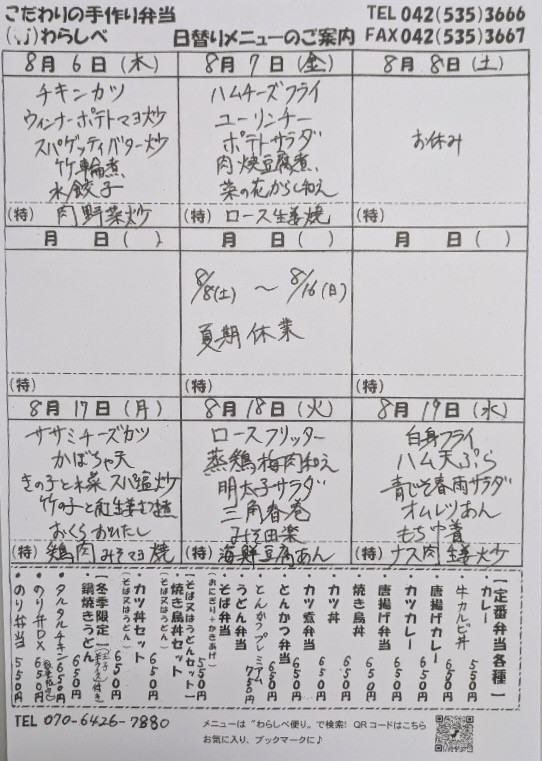 こだわりの手作り弁当
わらしべ 日替りメニューのご案内
TEL 042(535)3666
FAX 042(535)3667
8月6日(木)
チキンカツ
ウィンナーポテトマヨ炒
スパゲッティバター炒
竹輪煮
水餃子
(特) 肉野菜炒
8月7日(金)
ハムチーズフライ
ユーリンチー
ポテトサラダ
肉焼豆腐煮
菜の花からし和え
(特) ロース生姜焼
8月8日(土)
お休み
(特)
月 日( )
(特)
月 日( )
8/8(土) ~ 8/16(日)
夏期休業
(特)
月 日( )
(特)
8月17日(月)
ササミチーズカツ
かぼちゃ天
きの子と水菜スパ塩炒
竹の子と
おくらおひたし
(特) 鶏肉みそマヨ焼
8月18日(火)
ロースフリッター
蒸鶏梅肉和え
明太子サラダ
三角春巻
みそ田楽
(特) 海鮮豆腐あん
8月19日(水)
白身フライ
ハム天ぷら
青じそ春雨サラダ
オムレツあん
もち巾着
(特) ナス肉生姜炒
【定番弁当各種】
・カレー 550円
・牛カルビ丼 650円
・唐揚げカレー 650円
・カツカレー 650円
・唐揚げ弁当 650円
・焼き鳥丼 650円
・カツ丼 650円
・カツ煮弁当 650円
・とんかつ弁当 650円
・とんかつプレミアム 750円
・うどん弁当
・そば弁当 550円
(おにぎり+かきあげ)
【そば又はうどんセット】
・焼き鳥丼セット 650円
(そば又はうどん)
・カツ丼セット 650円
(そば又はうどん)
【冬季限定】
・鍋焼きうどん 650円
・タルタルチキン 650円
・のり弁DX 650円
・のり弁当 550円
TEL 070-6426-7880
メニューは"わらしべ便り"で検索! QRコードはこちら
お気に入り、ブックマークに♪